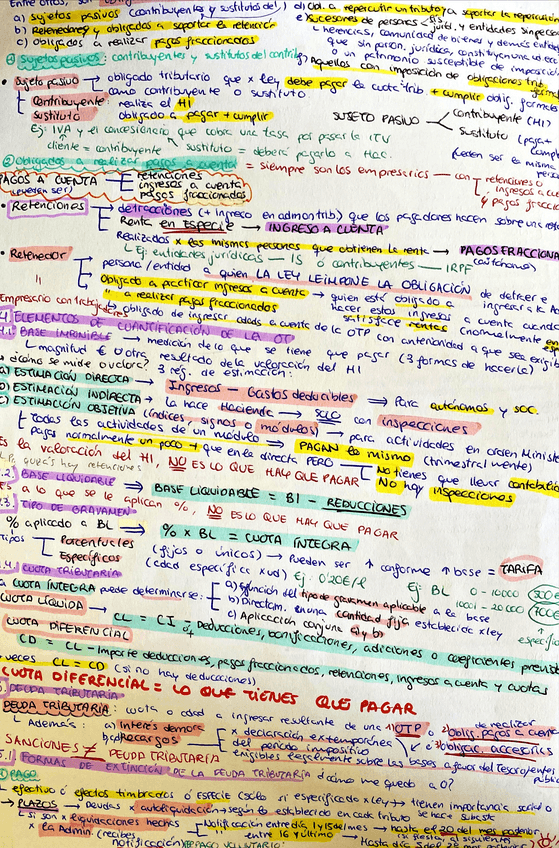 Entre otros, son
a) sujetos pasivos (contribuyentes y sustitutos del)
b) Retenedores y obligados a soportar la retención
c) Obligados a realizar pagos fraccionados
d) Obl. a repercutir un tributo y a soportar la repercusión
e) Sucesores de personas jurid. y entidades sin person
herencias, comunidad de bienes y demás entid
que sin person. jurídica, constituyen una ud econ
patrimonio susceptible de imposición
f) Aquellos con imposición de obligaciones trib. formal
① Sujetos pasivos: contribuyentes y sustitutos del contrib
• Sujeto pasivo → obligado tributario que x Ley debe pagar la cuota trib. + cumplir oblig. formales
como contribuyente o sustituto
Contribuyente: realiza el HI
sustituto obligado a pagar + cumplir
SUJETO PASIVO contribuyente (HI)
Sustituto (paga + cumple
pueden ser la misma persona
Ej: IVA y el concesionario que cobra una tasa por pasar la ITV
cliente = contribuyente sustituto = deberá pagarlo a Hac.
② Obligados a realizar pagos a cuenta = siempre son los empresarios — con retenciones o
ingresos a cu
y pagos fracció
PAGOS A CUENTA retenciones
(pueden ser) ingresos a cuenta
pagos fraccionados
• Retenciones → detracciones (+ ingreso en admon trib.) que los pagadores hacen sobre una rent
Renta en ESPECIE → INGRESO A CUENTA
Realizados x las mismas personas que obtienen la renta → PAGOS FRACCIONA
Ej: entidades jurídicas — IS o contribuyentes — IRPF (autónomos)
• Retenedor → persona/entidad a quien LA LEY LE IMPONE LA OBLIGACIÓN de detraer e
" Obligado a practicar ingresos a cuenta → quien está obligado a ingresar a la Ad
hacer estos ingresos a cuenta cuando
satisface rentas (normalmente en esp
" a realizar pagos fraccionados
Empresario con trabajadores → obligado de ingresar cdads a cuenta de la OTP con anterioridad a que sea exigib
4. ELEMENTOS DE CUANTIFICACIÓN DE LA OT
4.1. BASE IMPONIBLE → medición de lo que se tiene que pagar (3 formas de hacerla)
magnitud € u otra resultado de la valoración del HI
¿cómo se mide o valora? 3 reg. de estimación:
a) ESTIMACIÓN DIRECTA → Ingresos - Gastos deducibles ⇒ Para autónomos y soc.
b) ESTIMACIÓN INDIRECTA → la hace Hacienda → SOLO con inspecciones
c) ESTIMACIÓN OBJETIVA (índices, signos o módulos) → para actividades en orden Ministe
todas las actividades de un módulo ⇒ PAGAN lo mismo (trimestralmente)
pagas normalmente un poco + que en la directa PERO No tienes que llevar contabilid
No hay inspecciones
Es la valoración del HI, NO ES LO QUE HAY QUE PAGAR
quizás hay retenciones
4.2. BASE LIQUIDABLE ⇒ BASE LIQUIDABLE = BI - REDUCCIONES
Es a lo que se le aplican %, NO ES LO QUE HAY QUE PAGAR
4.3. TIPO DE GRAVAMEN
% aplicado a BL ⇒ % x BL = CUOTA ÍNTEGRA
Tipos Porcentuales (fijos o únicos) → Pueden ser ↑ conforme ↑ base = TARIFA
Específicos (cdad específica x ud) Ej: 0'20€/l Ej BL 0 - 10000 500€
10001 - 20000 700€
específico
4.4. CUOTA TRIBUTARIA
La CUOTA ÍNTEGRA puede determinarse: a) Función del tipo de gravamen aplicable a la base
b) Directam. en una cantidad fija establecida x ley
c) Aplicación conjunta a) y b)
CUOTA LÍQUIDA → CL = CI ± Deducciones, bonificaciones, adiciones o coeficientes previstos
CUOTA DIFERENCIAL
CD = CL - Importe deducciones, pagos fraccionados, retenciones, ingresos a cuenta y cuotas
A veces CL = CD (si no hay deducciones)
CUOTA DIFERENCIAL = LO QUE TIENES QUE PAGAR
5. DEUDA TRIBUTARIA
DEUDA TRIBUTARIA: cuota o cdad a ingresar resultante de una 1) OTP o 2) Oblig. de realizar pagos a cuenta
Además: a) Interés demora o 3) obligac. accesorias
b) Recargos x declaración extemporánea
del periodo impositivo
exigibles legalmente sobre las bases a favor del Tesoro/entes públic
SANCIONES ≠ DEUDA TRIBUTARIA
5.1 FORMAS DE EXTINCIÓN DE LA DEUDA TRIBUTARIA ¿cómo me quedo a 0?
① PAGO
efectivo ó efectos timbrados ó ESPECIE (sólo si especificado x ley → tienen importancia social o
→ PLAZOS → Deudas x autoliquidación → según lo establecido en cada tributo
si son x liquidaciones hechas Notificación entre día 1 y 15 del mes → hasta el 20 del mes posterior
x la Admin. (recibes notificación) " entre 16 y último → Hasta día 5 del
(si fiesta, al siguiente)
PAGO VOLUNTARIO: